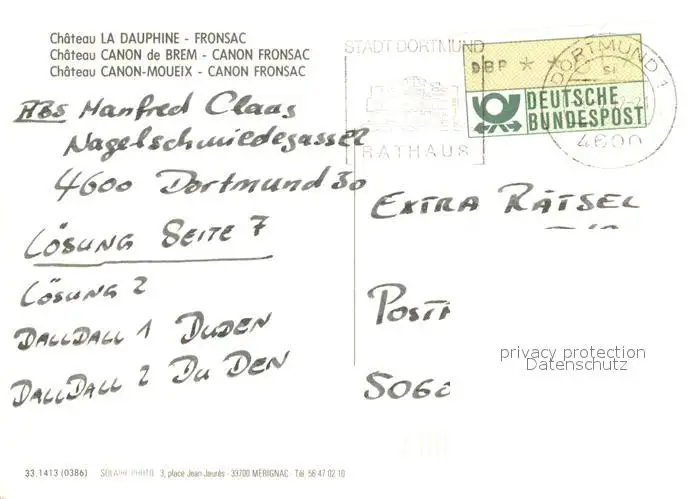 Château LA DAUPHINE - FRONSAC
Château CANON de BREM - CANON FRONSAC
Château CANON-MOUEIX - CANON FRONSAC
STADT DORTMUND
RATHAUS
DBP * *
DEUTSCHE
BUNDESPOST
DORTMUND 1
si
4600
ABS Manfred Claas
Nagelschmiedegasse 2
4600 Dortmund 30
LÖSUNG SEITE 7
LÖSUNG 2
DALLDALL 1 DUDEN
DALLDALL 2 DU DEN
EXTRA RÄTSEL
POST
privacy protection
Datenschutz
33.1413 (0386) SOLAIRE PHOTO 3, place Jean-Jaurès - 33700 MÉRIGNAC Tél. 56 47 02 10